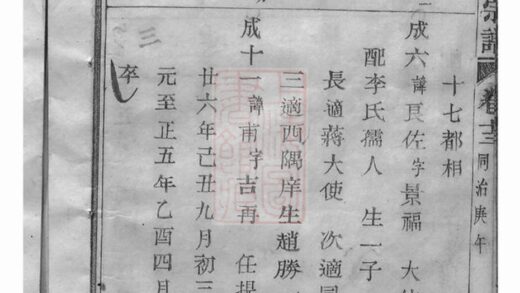 宗譜 卷 同治庚午
十七都相
成六 諱良佐字景福 大
配李氏孺人 生一子
長適蔣大使 次適
三適西隅庠生趙勝
成十一 諱甫字吉再 任
廿六年己丑九月初三
元至正五年乙酉四月
卒
三